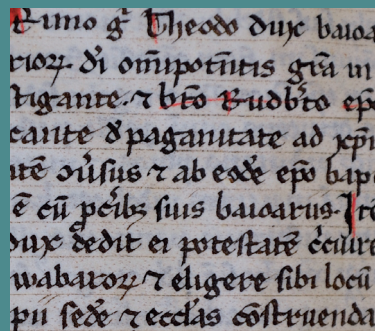 Rimo gͥ Theodo dux baioa
rioꝝ. dī om̄ipotentis gr̄a in
stigante. ⁊ bt̄o Rudb̄to ep̄o
cante đ paganitate ad xp̄i
atē ꝯūsus ⁊ ab eodē ep̄o bap
ē cū ꝓcibꝫ suis baioariis. Itē
dux dedit ei potestatē c̄cuire
wabaroꝝ ⁊ eligere sibi locū
pū sedē ⁊ eccl̄as ꝯ̄struenda